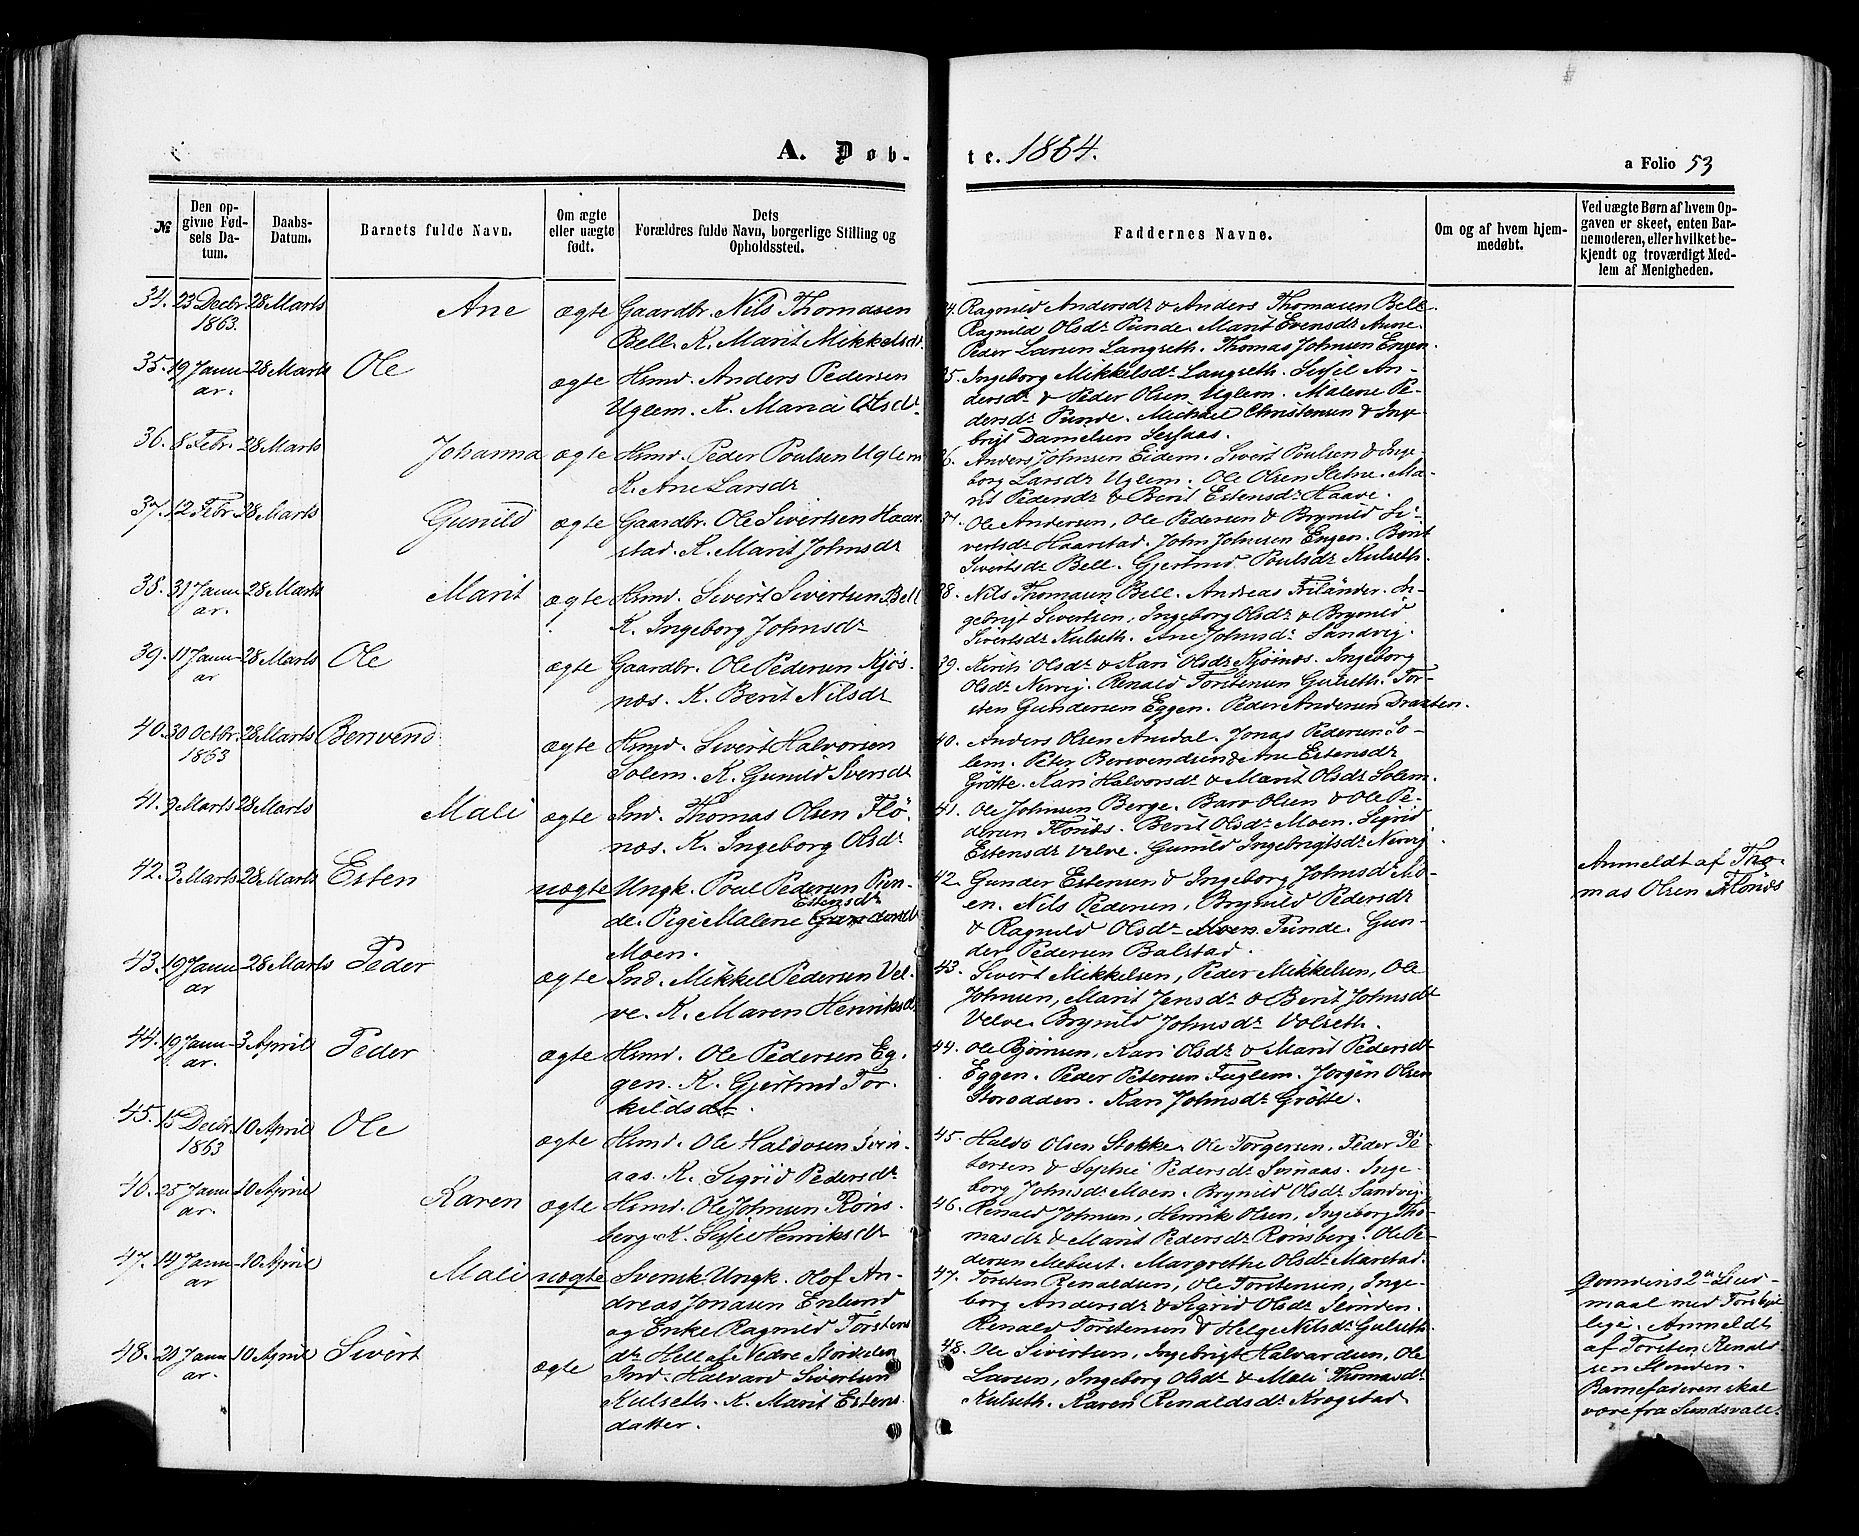 A. Døb-
te. 1864.
a Folio 53
№
Den op-
givne Fød-
sels Da-
tum.
Daabs-
Datum.
Barnets fulde Navn.
Om ægte
eller uægte
født.
Dets
Forældres fulde Navn, borgerlige Stilling og
Opholdssted.
Faddernes Navne.
Om og af hvem hjem-
medøbt.
Ved uægte Børn af hvem Op-
gaven er skeet, enten Bar-
nemoderen, eller hvilket be-
kjendt og troværdigt Med-
lem af Menigheden.
34. 23 Decbr. 28 Marts Ane ægte Gaardbr. Nils Thomasen
1863.
Bell. K. Marit Mikkelsdr.
34. Ragnild Andersdr & Anders Thomasen Bell.
Ragnild Olsdr Punde. Marit Evensdr Aune.
Peder Larsen Langseth. Thomas Johnsen Engen.
35. 19 Janu- 28 Marts Ole ægte Hsmd. Anders Pedersen
ar.
Uglem. K. Maria Olsdr.
35. Ingeborg Mikkelsdr Langseth. Sisil An-
dersdr & Peder Olsen Uglem. Malene Pe-
dersdr Punde. Michael Christensen & Ing-
brigt Danielsen Sessaas.
36. 8 Febr. 28 Marts Johanna ægte Hsmd. Peder Poulsen Uglem
K. Ane Larsdr
36. Anders Johnsen Eidem. Sivert Poulsen & Inge-
borg Larsdr Uglem. Ole Olsen Sletne. Ma-
rit Pedersdr & Berit Estensdr Haave.
37. 12 Febr. 28 Marts Gunild ægte Gaardbr. Ole Sivertsen Haar-
stad. K. Marit Johnsdr
37. Ole Andersen, Ole Pedersen & Brynild Si-
vertsdr Haarstad. John Johnsen Engen. Berit
Sivertsdr Bell. Gjertrud Poulsdr Kulseth.
38. 31 Janu- 28 Marts Marit ægte Hsmd. Sivert Sivertsen Bell
ar.
K. Ingeborg Johnsdr
38. Nils Thomasen Bell. Andreas Friländer. In-
gebrigt Sivertsen, Ingeborg Olsdr & Brynild
Sivertsdr Kulseth. Ane Johnsdr Sandvig.
39. 11 Janu- 28 Marts Ole ægte Gaardbr. Ole Pedersen Kjøs-
ar
næs. K. Berit Nilsdr
39. Kirsti Olsdr & Kari Olsdr Kjösnæs. Ingeborg
Olsdr Nervig. Renald Torstensen Gulseth. Tor-
sten Gundersen Eggen. Peder Andersen Draxten.
40. 30 Octbr. 28 Marts Berevend ægte Hsmd. Sivert Halvorsen
1863
Solem. K. Gunild Iversdr
40. Anders Olsen Amdal. Jonas Pedersen So-
lem. Peter Berevendsen & Ane Estensdr
Grötte. Kari Halvorsdr & Marit Olsdr Solem.
41. 9 Marts 28 Marts Mali ægte Ind. Thomas Olsen Flö-
næs. K. Ingeborg Olsdr
41. Ole Johnsen Berge. Baro Olsen & Ole Pe-
dersen Flönæs. Berit Olsdr Moen. Sigrid
Estensdr Velve. Gunild Ingebrigtsdr Nervig
42. 3 Marts 28 Marts Esten uægte Ungk. Poul Pedersen Pun-
de. Pige Malene Estensdr Gundersdr
Moen.
42. Gunder Estensen & Ingeborg Johnsdr Mo-
en. Nils Pedersen, Brynild Pedersdr
& Ragnild Olsdr Moen Punde. Gun-
der Pedersen Balstad.
Anmeldt af Tho-
mas Olsen Flönæs
43. 19 Janu- 28 Marts Peder ægte Ind. Mikkel Pedersen Vel-
ar
ve. K. Maren Henriksdr
43. Sivert Mikkelsen, Peder Mikkelsen, Ole
Johnsen, Marit Jensdr & Berit Johnsdr
Velve. Brynild Johnsdr Volseth.
44. 19 Janu- 3 April Peder ægte Hsmd. Ole Pedersen Eg-
ar.
gen. K. Gjertrud Tor-
kildsdr.
44. Ole Bjørnsen, Kari Olsdr & Marit Pedersdr
Eggen. Peder Petersen Fuglem. Jörgen Olsen
Storødden. Kari Johnsdr Grötte.
45. 15 Decbr. 10 April Ole ægte Hsmd. Ole Haldosen Svin-
1863
aas. K. Sigrid Pedersdr
45. Haldo Olsen Stokke. Ole Torgersen. Peder Pe-
tersen & Sophie Pedersdr Svinaas. Inge-
borg Johnsdr Moen. Brynild Olsdr Sandvig.
46. 25 Janu- 10 April Karen ægte Hsmd. Ole Johnsen Röns-
ar.
berg. K. Sisil Henriksdr
46. Renald Johnsen, Henrik Olsen, Ingeborg Tho-
masdr & Marit Pedersdr Rönsberg. Ole Pe-
dersen Mebust. Margrethe Olsdr Marstad.
47. 14 Janu- 10 April Mali uægte Svensk Ungk. Olof An-
ar
dreas Jonasen Enlund
og Enke Ragnild Torstens-
dr Hell af Nedre Stördalen
47. Torsten Renaldsen, Ole Torstensen, Inge-
borg Andersdr & Sigrid Olsdr Slinden.
Renald Torstensen & Helge Nilsdr Gulseth.
Qvindens 2det Leier-
maal med Forskjel-
lige. Anmeldt
af Torsten Renald-
sen Slinden.
Barnefaderen skal
være fra Sundsvall.
48. 20 Janu- 10 April Sivert ægte Ind. Halvard Sivertsen
ar.
Kulseth. K. Marit Estens-
datter.
48. Ole Sivertsen, Ingebrigt Halvardsen, Ole
Larsen, Ingeborg Olsdr & Mali Thomasdr
Kulseth. Karen Renaldsdr Krogstad.